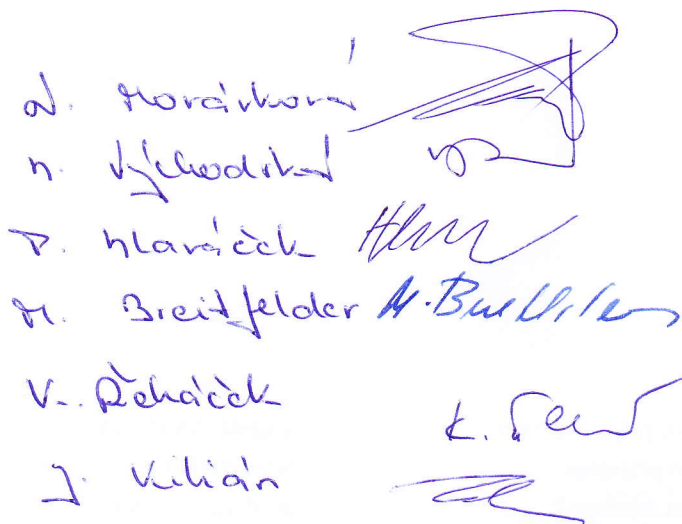 D. Morávková
N. Východská
P. Hlaváček
M. Breitfelder M. Breitfelder
K. Řeháček
J. Kilián